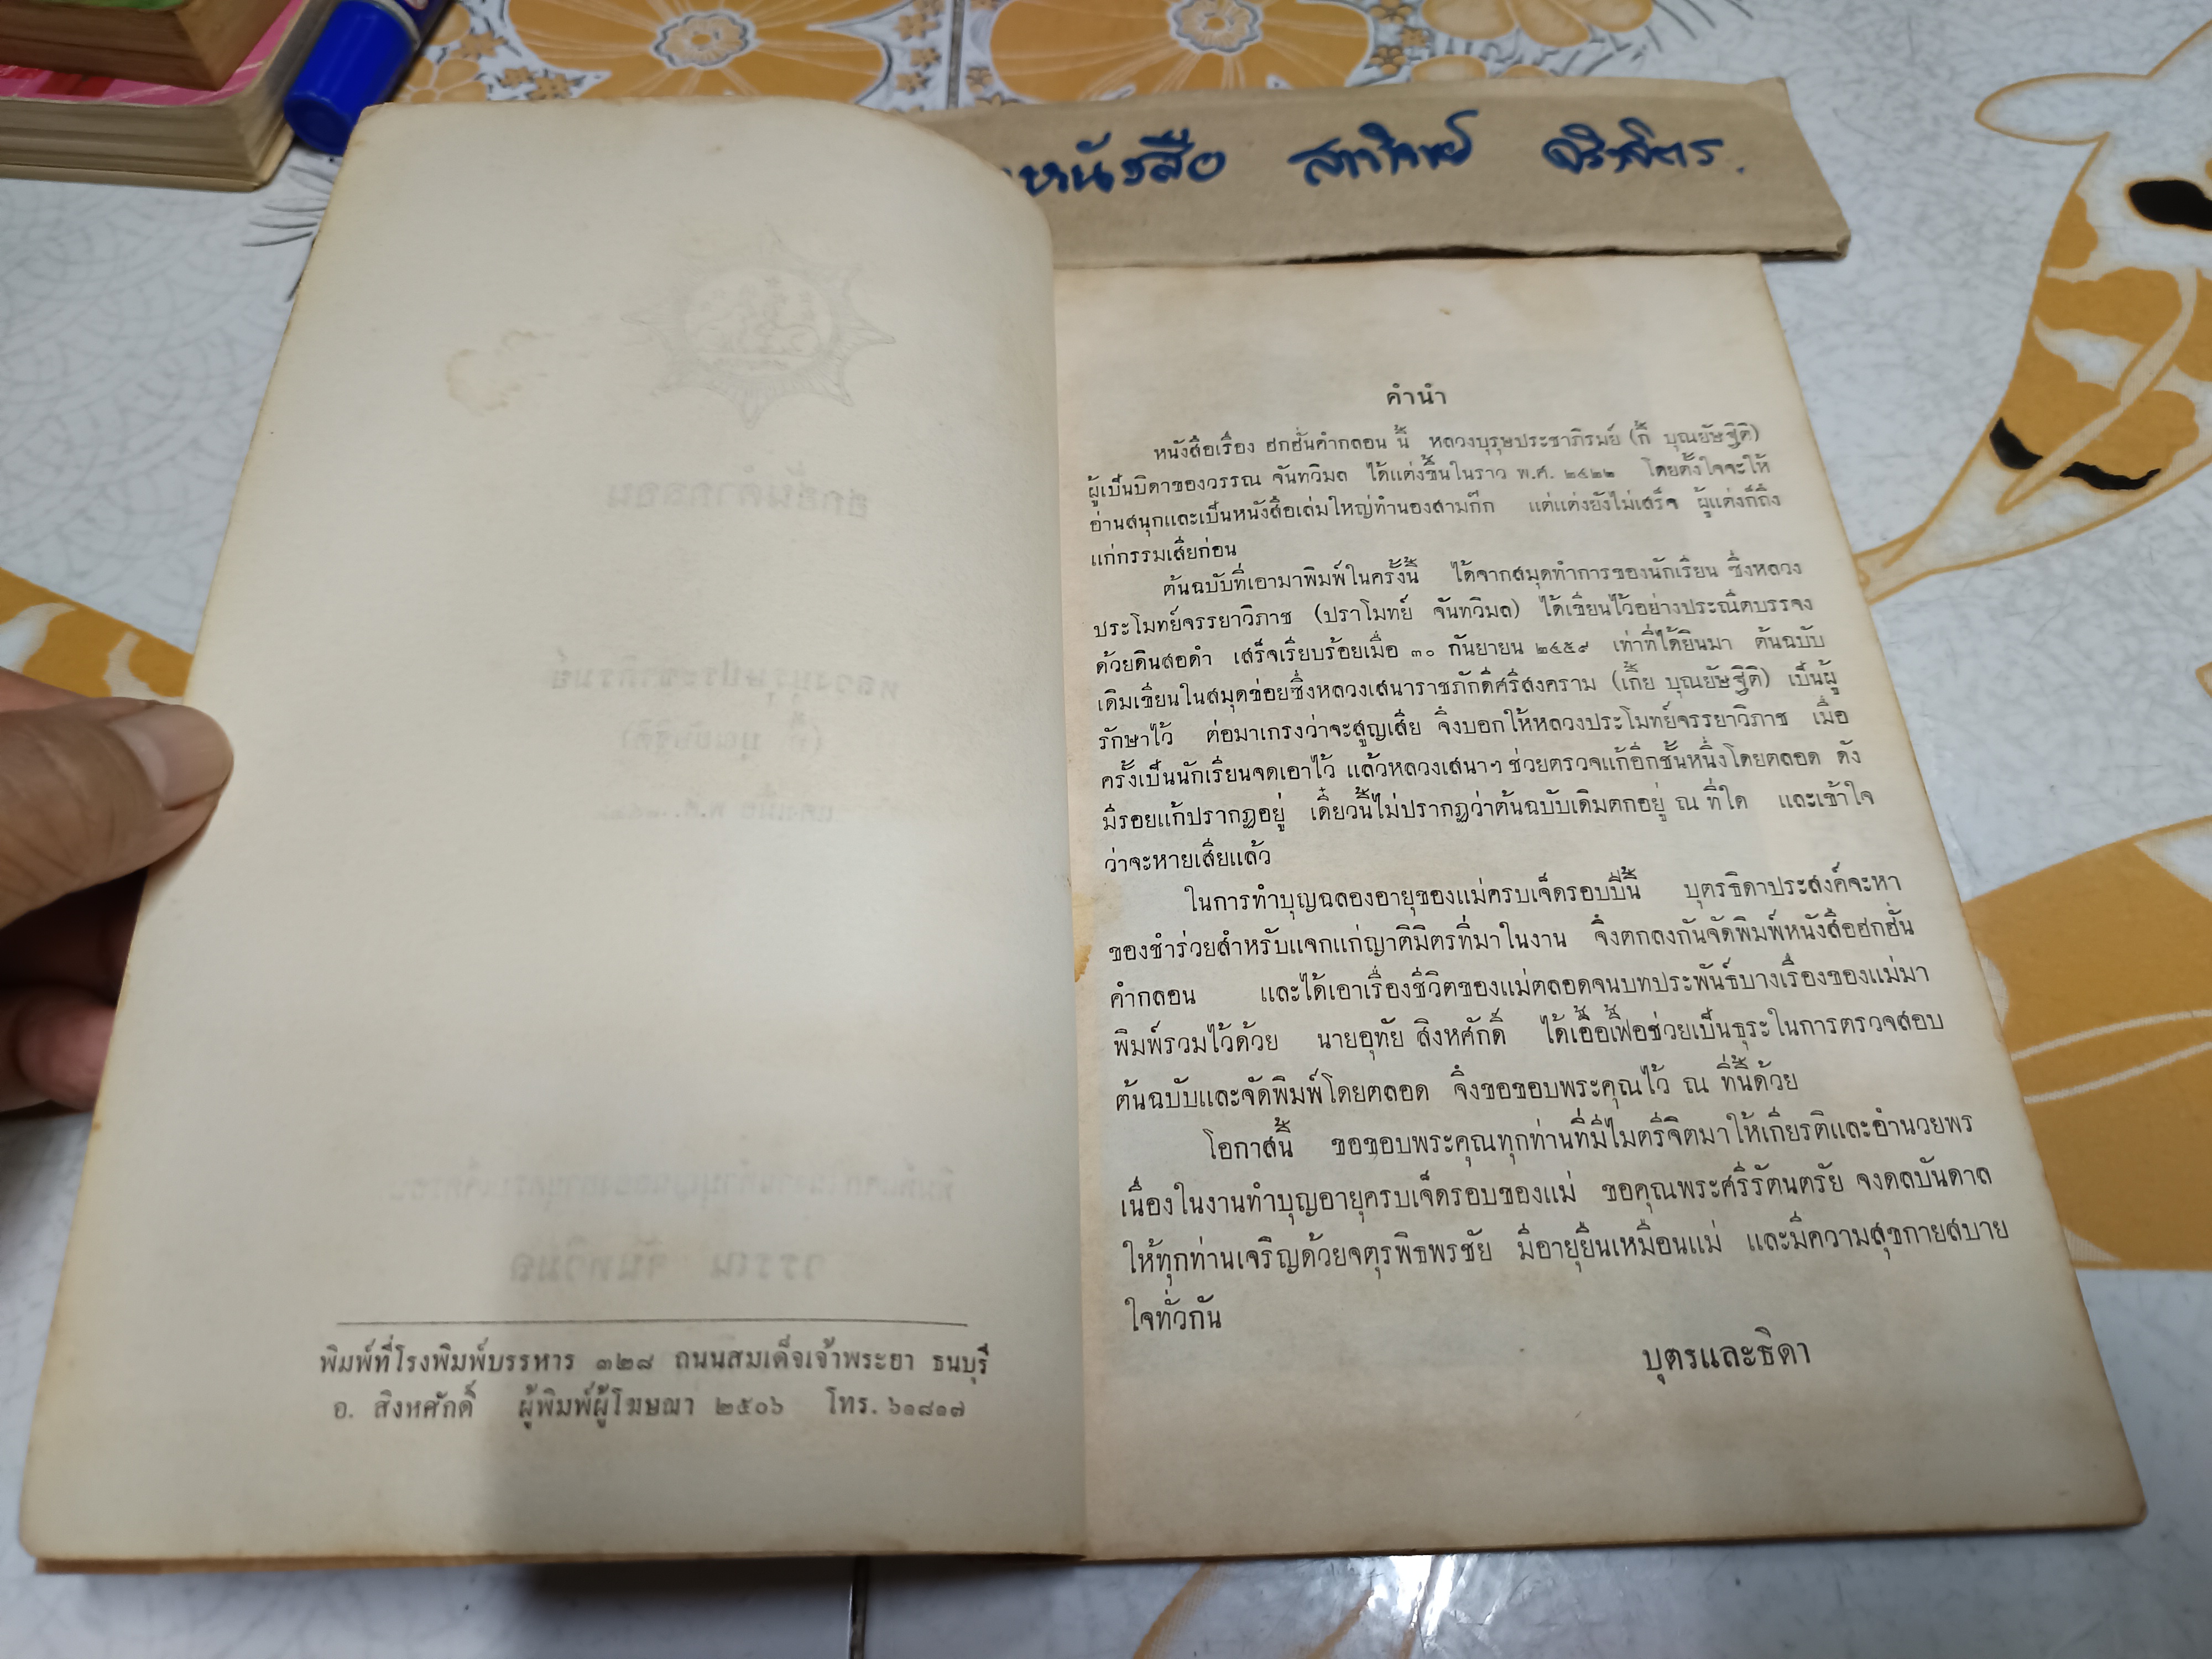 หนังสือ
พิมพ์ที่โรงพิมพ์บรรหาร ๓๒๘ ถนนสมเด็จเจ้าพระยา ธนบุรี
อ. สิงหศักดิ์ ผู้พิมพ์ผู้โฆษณา ๒๕๐๖ โทร. ๖๑๘๑๗
คำนำ
หนังสือเรื่อง ฮกฮั่นคำกลอน นี้ หลวงบุรุษประชาภิรมย์ (กี้ บุณยัษฐิติ)
ผู้เป็นบิดาของวรรณ จันทวิมล ได้แต่งขึ้นในราว พ.ศ. ๒๔๒๒ โดยตั้งใจจะให้
อ่านสนุกและเป็นหนังสือเล่มใหญ่ทำนองสามก๊ก แต่แต่งยังไม่เสร็จ ผู้แต่งก็ถึง
แก่กรรมเสียก่อน
ต้นฉบับที่เอามาพิมพ์ในครั้งนี้ ได้จากสมุดทำการของนักเรียน ซึ่งหลวง
ประโมทย์จรรยาวิภาช (ปราโมทย์ จันทวิมล) ได้เขียนไว้อย่างประณีตบรรจง
ด้วยดินสอดำ เสร็จเรียบร้อยเมื่อ ๓๐ กันยายน ๒๔๕๙ เท่าที่ได้ยินมา ต้นฉบับ
เดิมเขียนในสมุดข่อยซึ่งหลวงเสนาราชภักดีศรีสงคราม (เกี้ย บุณยัษฐิติ) เป็นผู้
รักษาไว้ ต่อมาเกรงว่าจะสูญเสีย จึงบอกให้หลวงประโมทย์จรรยาวิภาช เมื่อ
ครั้งเป็นนักเรียนจดเอาไว้ แล้วหลวงเสนาฯ ช่วยตรวจแก้อีกชั้นหนึ่งโดยตลอด ดัง
มีรอยแก้ปรากฏอยู่ เดี๋ยวนี้ไม่ปรากฏว่าต้นฉบับเดิมตกอยู่ ณ ที่ใด และเข้าใจ
ว่าจะหายเสียแล้ว
ในการทำบุญฉลองอายุของแม่ครบเจ็ดรอบปีนี้ บุตรธิดาประสงค์จะหา
ของชำร่วยสำหรับแจกแก่ญาติมิตรที่มาในงาน จึงตกลงกันจัดพิมพ์หนังสือฮกฮั่น
คำกลอน และได้เอาเรื่องชีวิตของแม่ตลอดจนบทประพันธ์บางเรื่องของแม่มา
พิมพ์รวมไว้ด้วย นายอุทัย สิงหศักดิ์ ได้เอื้อเฟื้อช่วยเป็นธุระในการตรวจสอบ
ต้นฉบับและจัดพิมพ์โดยตลอด จึงขอขอบพระคุณไว้ ณ ที่นี้ด้วย
โอกาสนี้ ขอขอบพระคุณทุกท่านที่มีไมตรีจิตมาให้เกียรติและอำนวยพร
เนื่องในงานทำบุญอายุครบเจ็ดรอบของแม่ ขอคุณพระศรีรัตนตรัย จงดลบันดาล
ให้ทุกท่านเจริญด้วยจตุรพิธพรชัย มีอายุยืนเหมือนแม่ และมีความสุขกายสบาย
ใจทั่วกัน
บุตรและธิดา